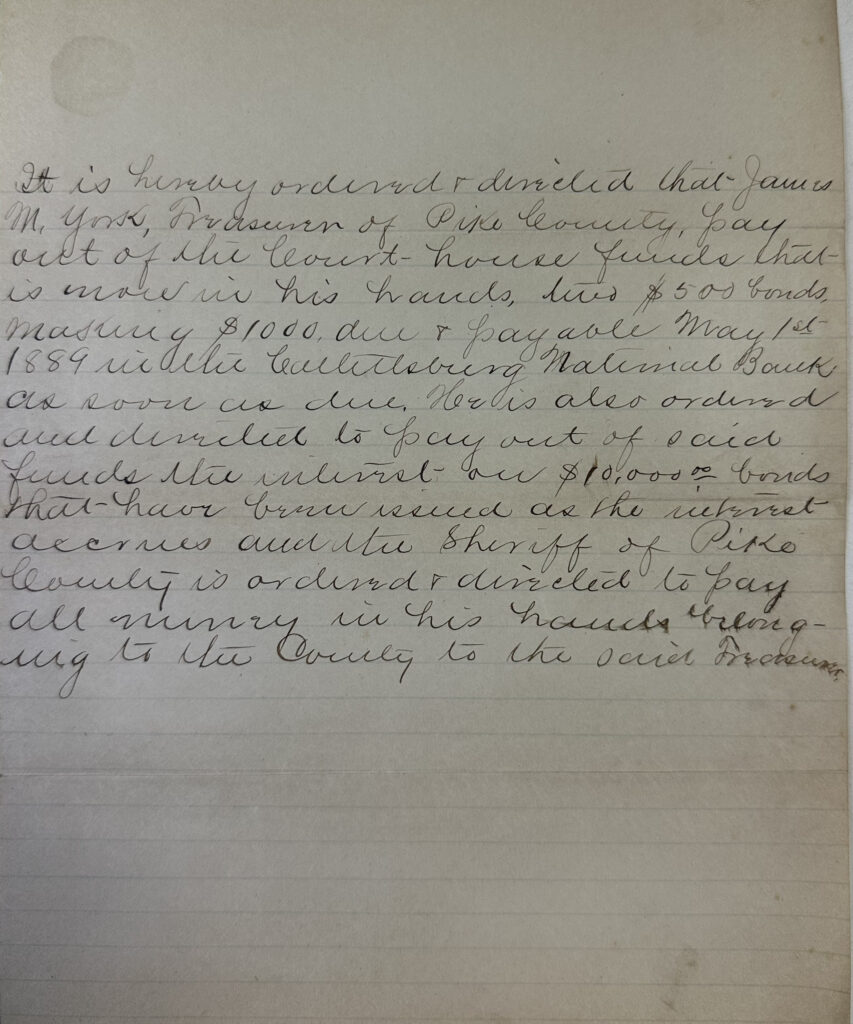 It is hereby ordered & directed that James
M. York, Treasurer of Pike County, pay
out of the Court-house funds that
is now in his hands, two $500 bonds,
making $1000, due & payable May 1st
1889 in the Catlettsburg National Bank
as soon as due. He is also ordered
and directed to pay out of said
funds the interest on $10,000.00 bonds
that have been issued as the interest
accrues and the Sheriff of Pike
County is ordered & directed to pay
all money in his hands belong-
ing to the County to the said Treasurer.